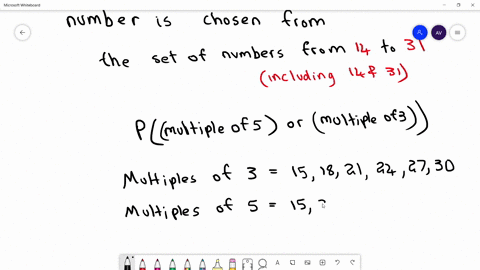 Microsoft Whiteboard
AV
number is chosen from
the set of numbers from 14 to 31
(including 14 & 31)
P((multiple of 5) or (multiple of 3))
Multiples of 3 = 15, 18, 21, 24, 27, 30
Multiples of 5 = 15,